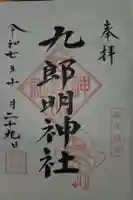 奉拝
九郎明神社
令和七年十月二十九日